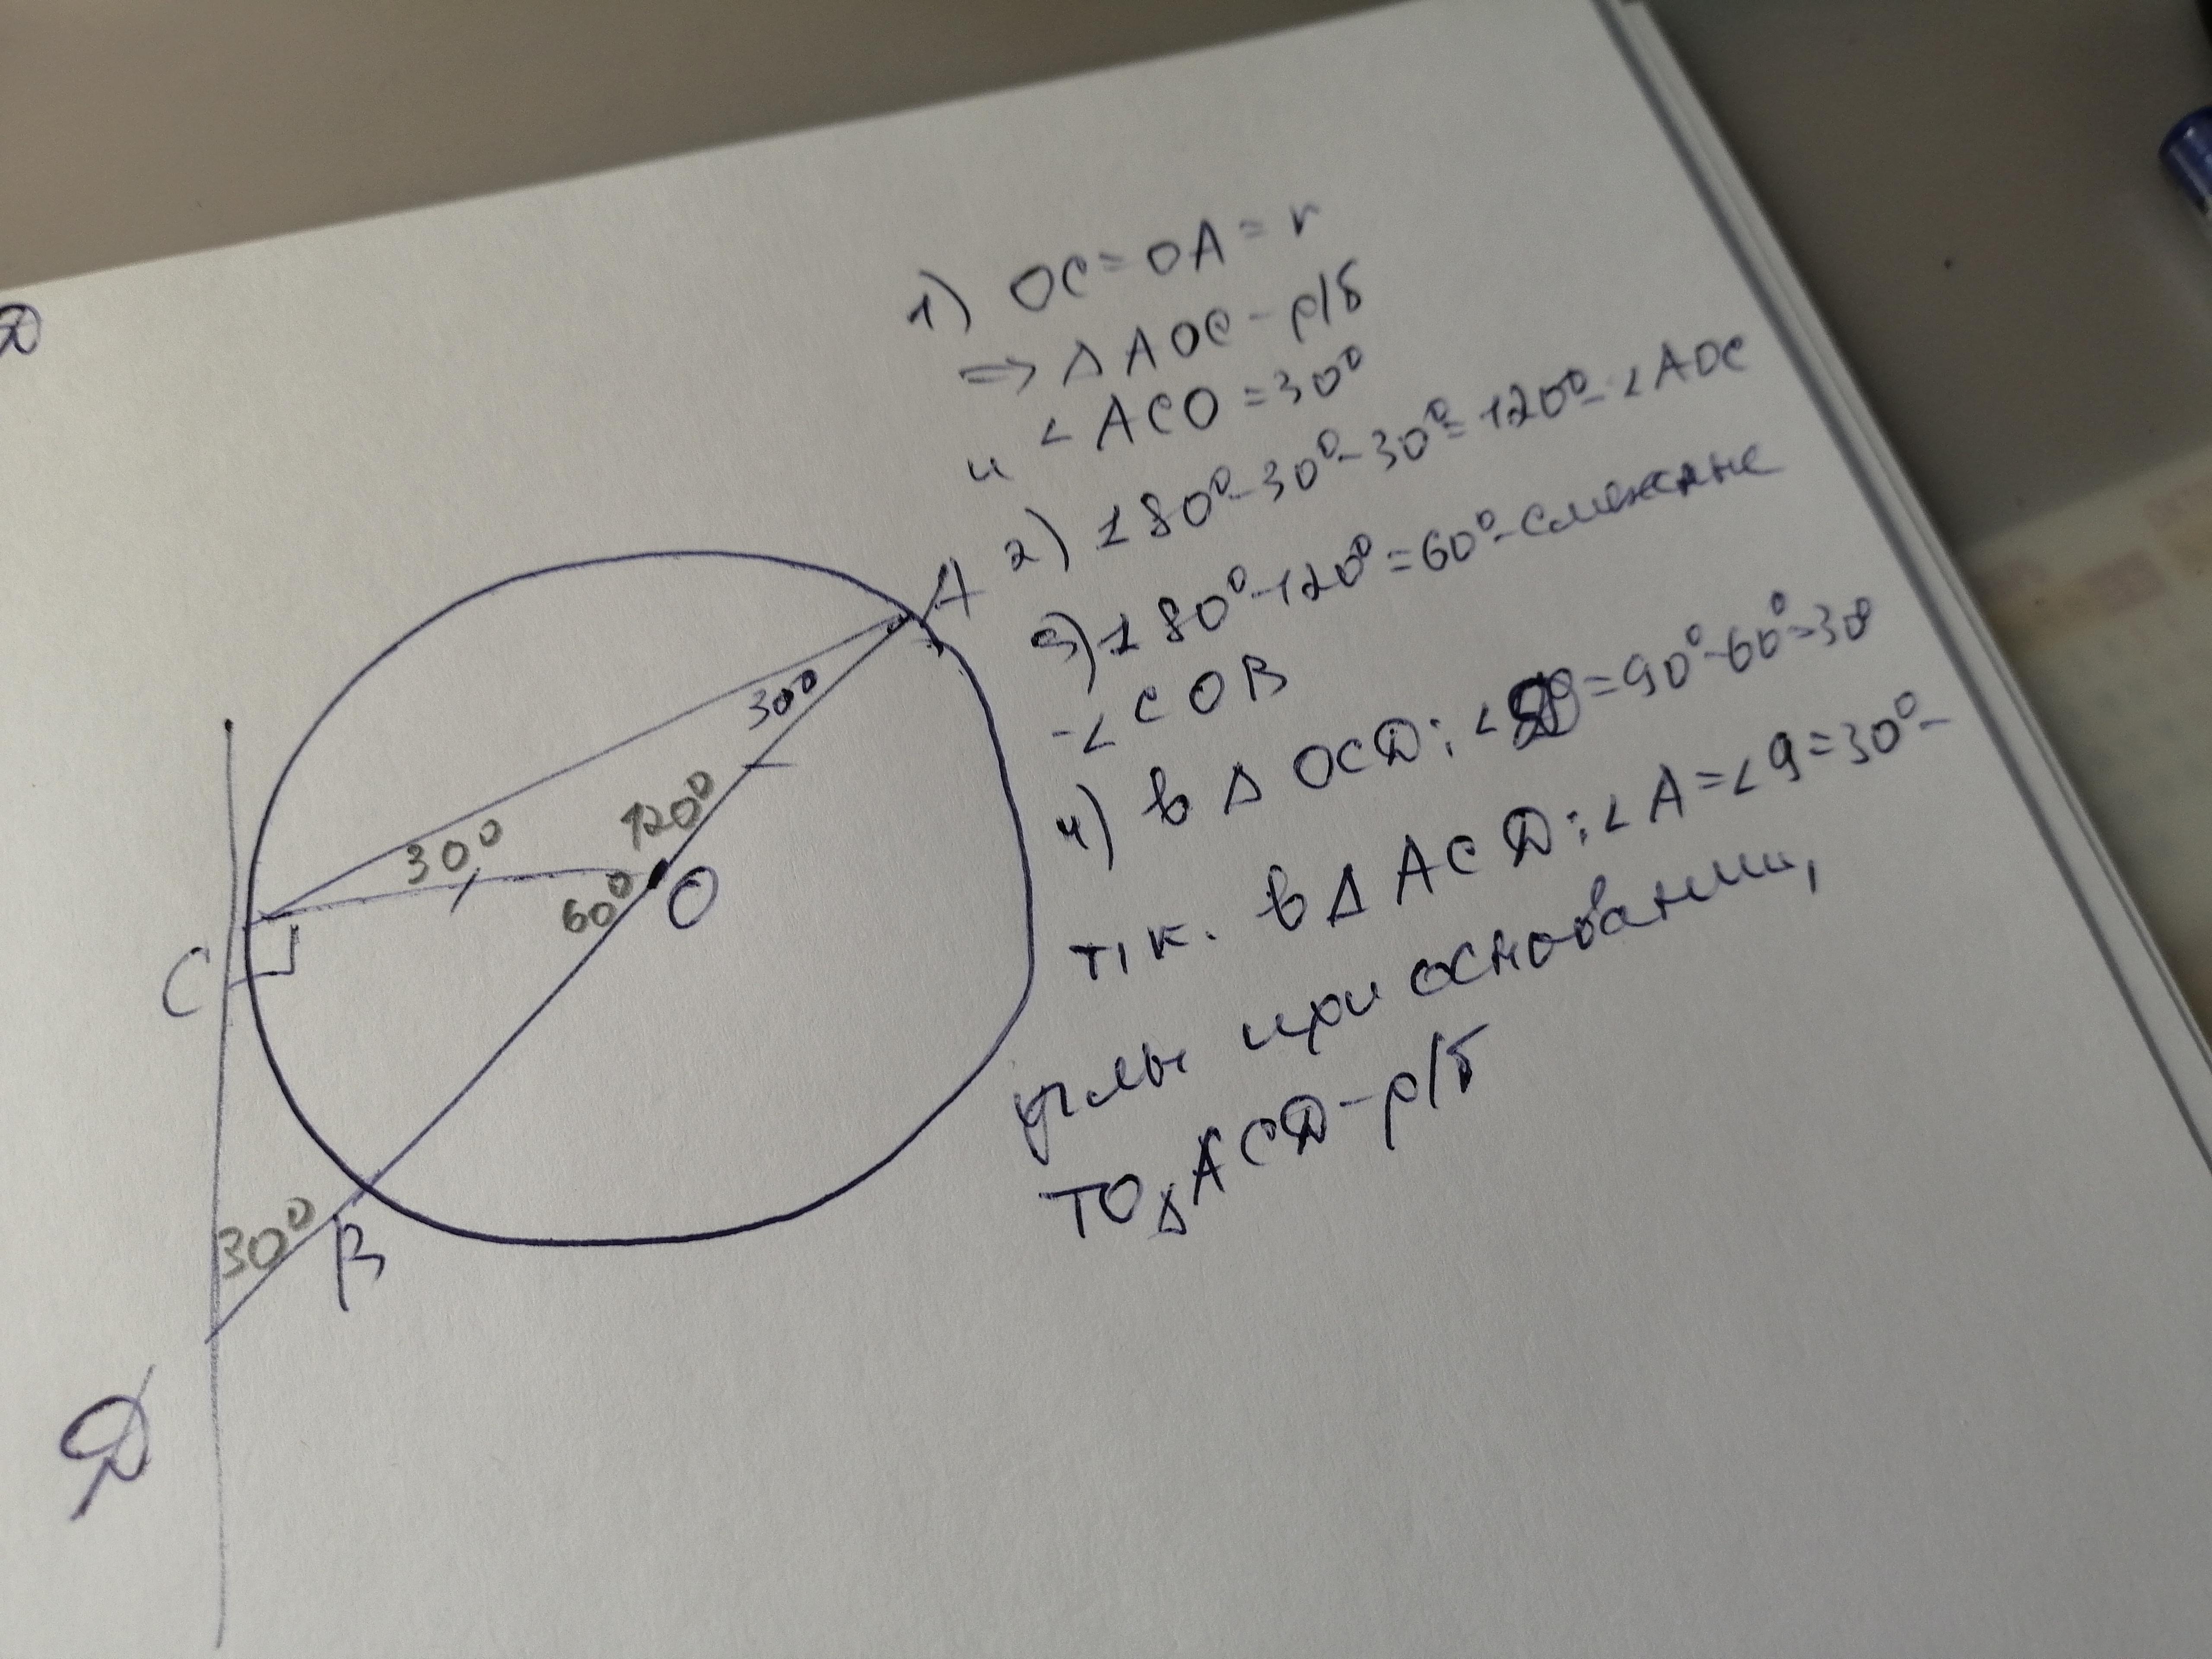 Д
1) OC = OA = r
=> Δ AOC - р/б
и ∠ ACO = 30°
2) 180° - 30° - 30° = 120° - ∠ AOC
3) 180° - 120° = 60° - смежные
- ∠ COB
4) в Δ OCД: ∠ = 90° - 60° = 30
т.к. в Δ ACД: ∠ A = ∠ g = 30° -
углы при основании,
то Δ ACД - р/б
A
30°
120°
30°
60°
O
C
30°
B
Д